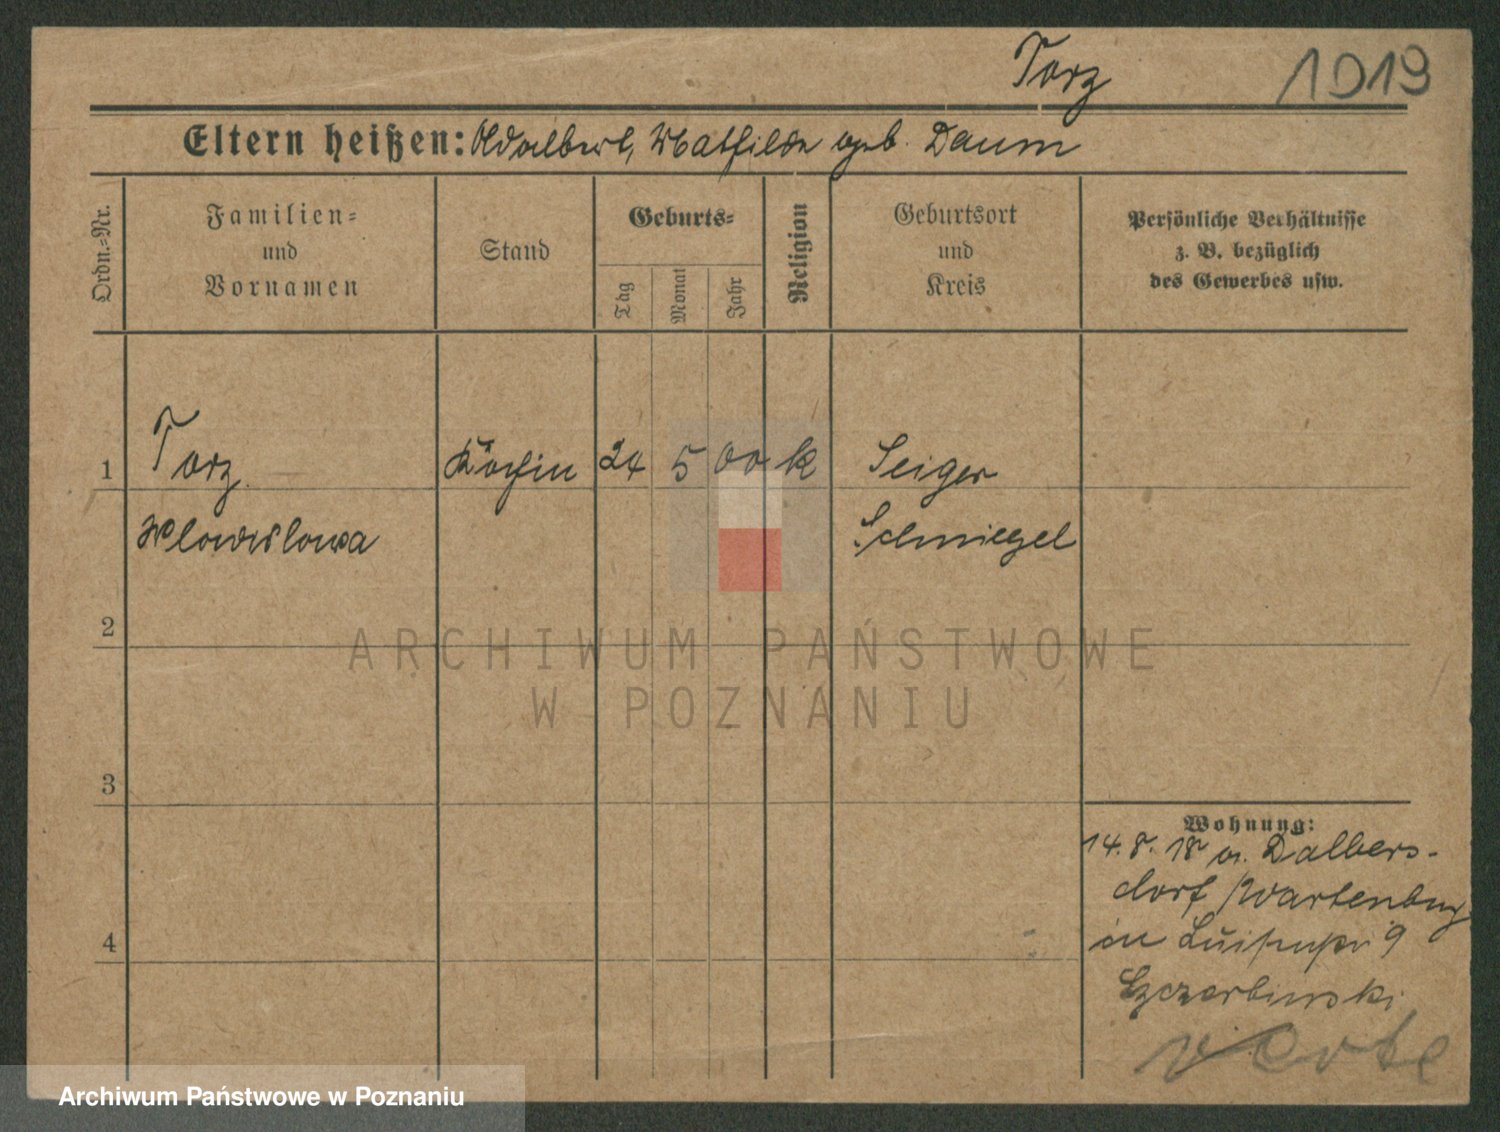 Torz 1919
Eltern heißen: Adalbert, Mathilde geb. Daum
Ordn.=Nr.
Familien=
und
Vornamen
Stand
Geburts=
Tag
Monat
Jahr
Religion
Geburtsort
und
Kreis
Persönliche Verhältnisse
z. B. bezüglich
des Gewerbes usw.
1 Torz Köchin 24 5 00 k Seiger
Schmiegel
2
3
4
Wohnung:
14.8.18 v. Dalbers-
dorf /Wartenburg
in 9
verte
ARCHIWUM PAŃSTWOWE
W POZNANIU
Archiwum Państwowe w Poznaniu